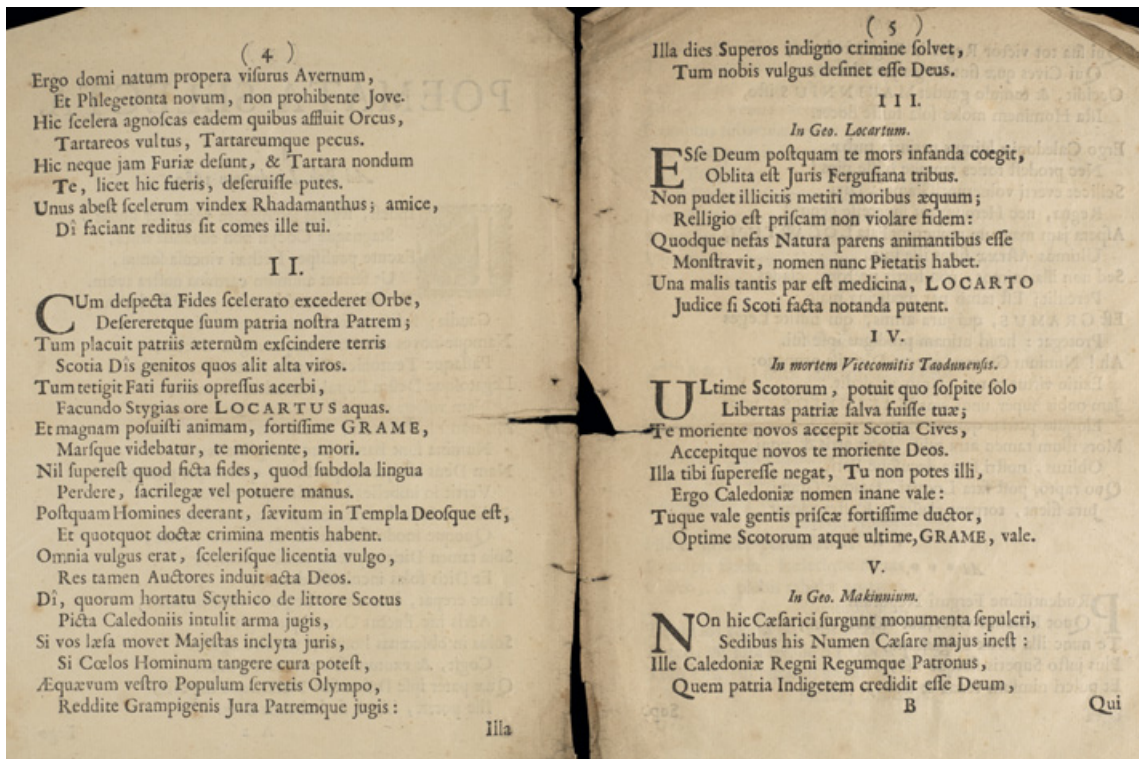 ( 4 )
Ergo domi natum propera visurus Avernum,
Et Phlegetonta novum, non prohibente Jove.
Hic scelera agnoscas eadem quibus affluit Orcus,
Tartareos vultus, Tartareumque pecus.
Hic neque jam Furiæ desunt, & Tartara nondum
Te, licet hic fueris, deseruisse putes.
Unus abest scelerum vindex Rhadamanthus; amice,
Dî faciant reditus sit comes ille tui.
II.
CUm despecta Fides scelerato excederet Orbe,
Desereretque suum patria nostra Patrem;
Tum placuit patriis æternùm exscindere terris
Scotia Dîs genitos quos alit alta viros.
Tum tetigit Fati furiis opressus acerbi,
Facundo Stygias ore LOCARTUS aquas.
Et magnam posuisti animam, fortissime GRAME,
Marsque videbatur, te moriente, mori.
Nil superest quod ficta fides, quod subdola lingua
Perdere, sacrilegæ vel potuere manus.
Postquam Homines deerant, sævitum in Templa Deosque est,
Et quotquot doctæ crimina mentis habent.
Omnia vulgus erat, scelerisque licentia vulgo,
Res tamen Auctores induit acta Deos.
Dî, quorum hortatu Scythico de littore Scotus
Picta Caledoniis intulit arma jugis,
Si vos læsa movet Majestas inclyta juris,
Si Cœlos Hominum tangere cura potest,
Æquævum vestro Populum servetis Olympo,
Reddite Grampigenis Jura Patremque jugis:
Illa
( 5 )
Illa dies Superos indigno crimine solvet,
Tum nobis vulgus desinet esse Deus.
III.
In Geo. Locartum.
ESse Deum postquam te mors infanda coegit,
Oblita est Juris Fergusiana tribus.
Non pudet illicitis metiri moribus æquum;
Relligio est priscam non violare fidem:
Quodque nefas Natura parens animantibus esse
Monstravit, nomen nunc Pietatis habet.
Una malis tantis par est medicina, LOCARTO
Judice si Scoti facta notanda putent.
IV.
In mortem Vicecomitis Taodunensis.
ULtime Scotorum, potuit quo sospite solo
Libertas patriæ salva fuisse tuæ;
Te moriente novos accepit Scotia Cives,
Accepitque novos te moriente Deos.
Illa tibi superesse negat, Tu non potes illi,
Ergo Caledoniæ nomen inane vale:
Tuque vale gentis priscæ fortissime ductor,
Optime Scotorum atque ultime, GRAME, vale.
V.
In Geo. Makinnium.
NOn hic Cæsarici surgunt monumenta sepulcri,
Sedibus his Numen Cæsare majus inest:
Ille Caledoniæ Regni Regumque Patronus,
Quem patria Indigetem credidit esse Deum,
B
Qui